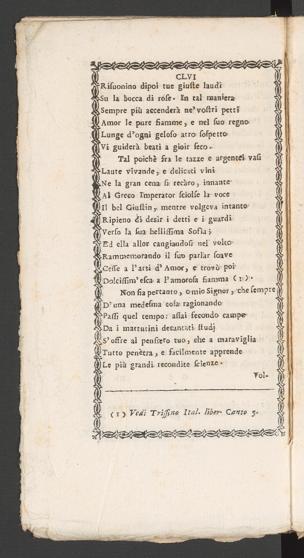 CLVI
Risuonino dipoi tue giuste laudi
Su la bocca di rose. In tal maniera
Sempre più accenderà ne' vostri petti
Amor le pure fiamme, e nel suo regno
Lunge d'ogni geloso atro sospetto
Vi guiderà beati a gioir seco.
Tal poichè fra le tazze e argentei vasi
Laute vivande, e delicati vini
Ne la gran cena si recàro, innante
Al Greco Imperator sciolse la voce
Il bel Giustin, mentre volgeva intanto
Ripieno di desir i detti e i guardi
Verso la sua bellissima Sofia;
Ed ella allor cangiandosi nel volto
Rammemorando il suo parlar soave
Cesse a l'arti d'Amor, e trovò poi
Dolcissim' esca a l'amorosa fiamma (1).
Non sia pertanto, o mio Signor, che sempre
D'una medesma cosa ragionando
Passi quel tempo: assai fecondo campo
Da i mattutini decantati studj
S'offre al pensiero tuo, che a maraviglia
Tutto penètra, e facilmente apprende
Le più grandi recondite scienze.
Vol-
(1) Vedi Trissino Ital. liber. Canto 3.